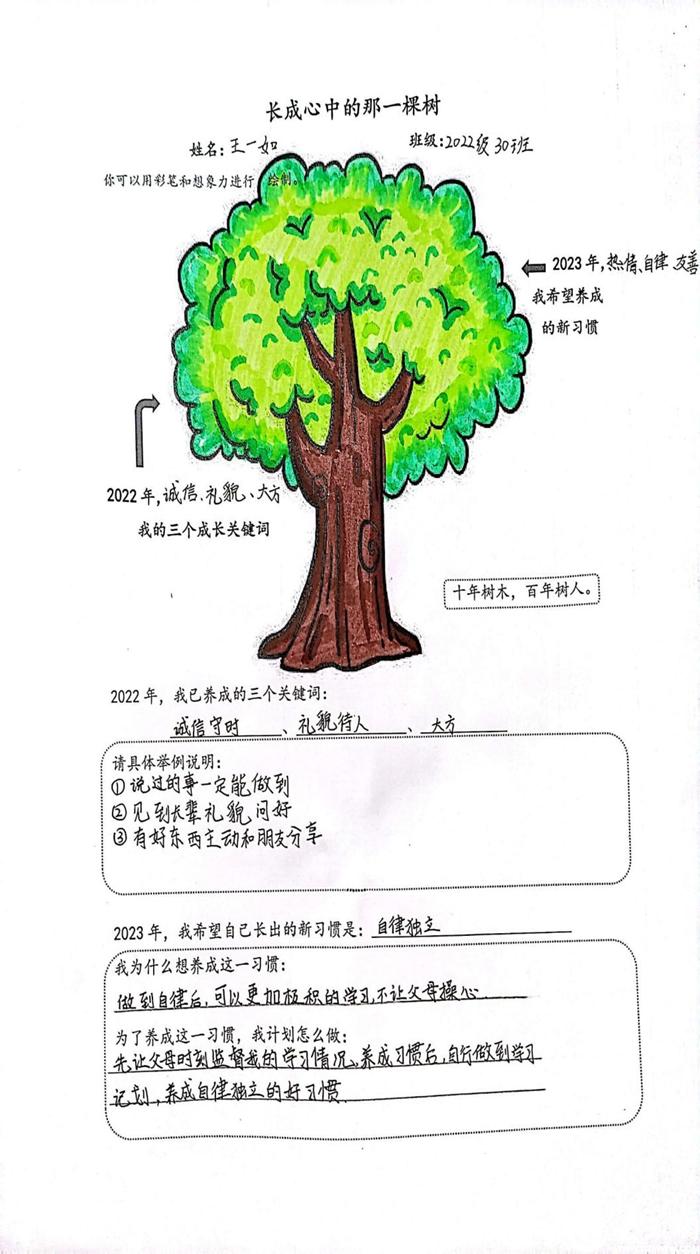 长成心中的那一棵树
姓名：王一如 班级：2022级30班
你可以用彩笔和想象力进行 绘制。
2023年，热情、自律 友善
我希望养成
的新习惯
2022年，诚信、礼貌、大方
我的三个成长关键词
十年树木，百年树人。
2022年，我已养成的三个关键词：
诚信守时、礼貌待人、大方
请具体举例说明：
①说过的事一定能做到
②见到长辈礼貌问好
③有好东西主动和朋友分享
2023年，我希望自己长出的新习惯是：自律独立
我为什么想养成这一习惯：
做到自律后，可以更加极积的学习，不让父母操心.
为了养成这一习惯，我计划怎么做：
先让父母时刻监督我的学习情况、养成习惯后，自行做到学习
记划，养成自律独立的好习惯.